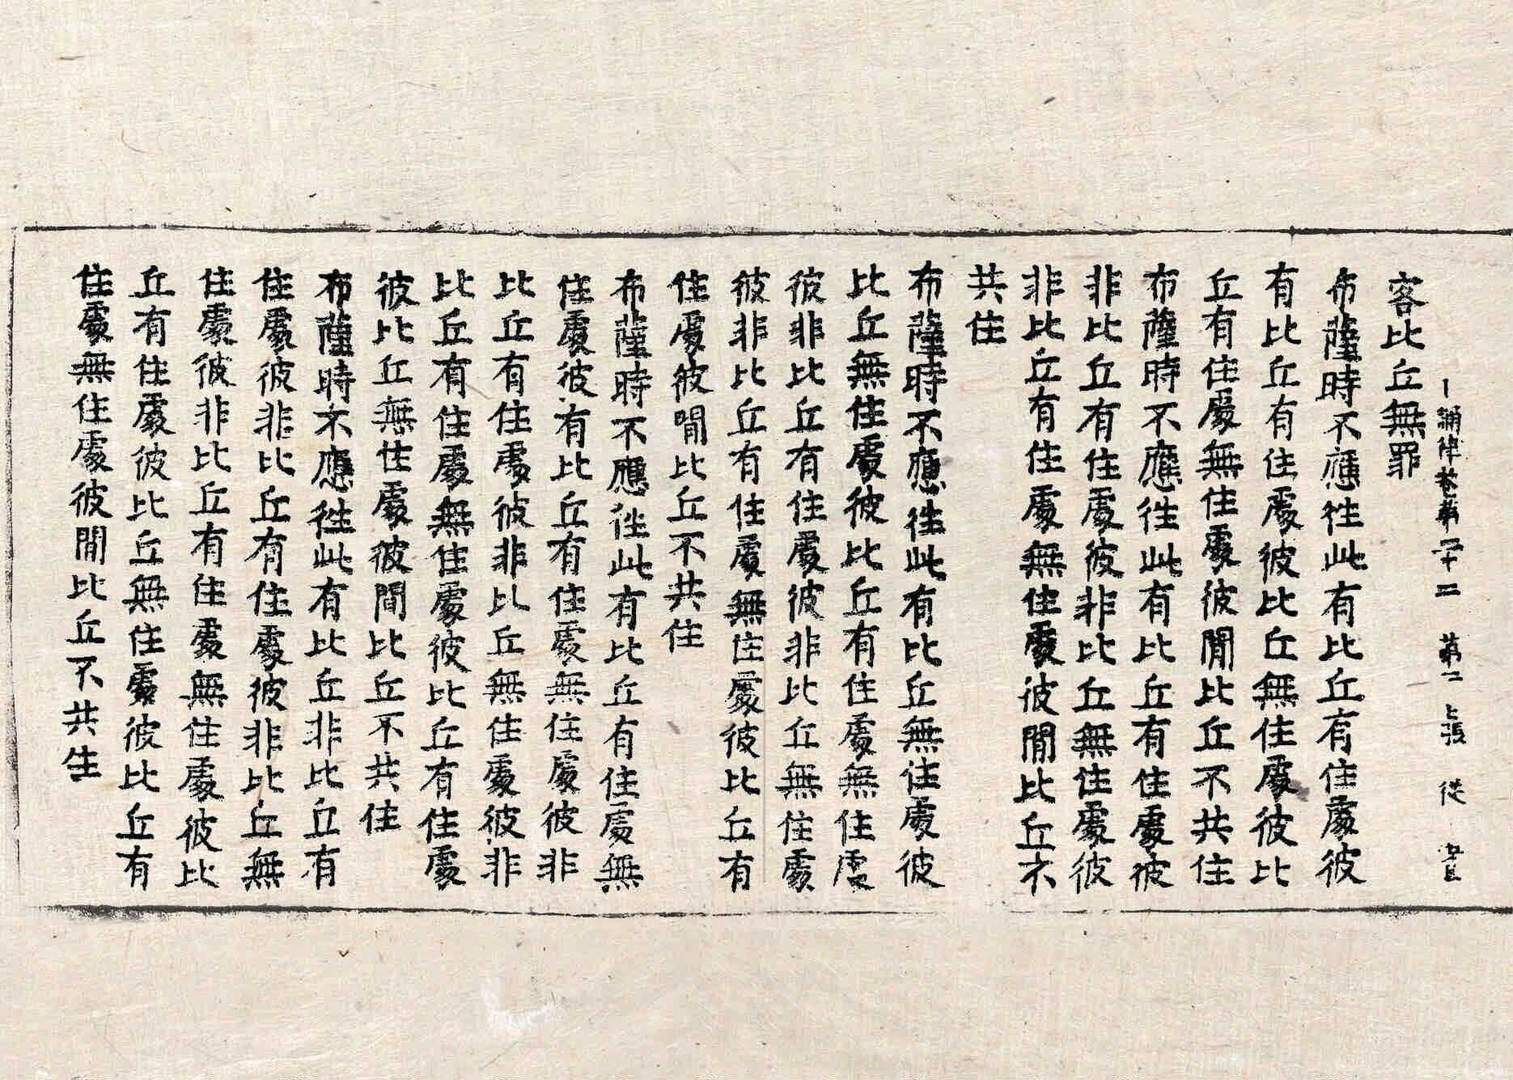 誦律卷第二十二 第二 張 從
客比丘無罪
布薩時不應徃此有比丘有住處彼
有比丘有住處彼比丘無住處彼比
丘有住處無住處彼間比丘不共住
布薩時不應徃此有比丘有住處彼
非比丘有住處彼非比丘無住處彼
非比丘有住處無住處彼間比丘不
共住
布薩時不應徃此有比丘無住處彼
比丘無住處彼比丘有住處無住處
彼非比丘有住處彼非比丘無住處
彼非比丘有住處無住處彼比丘有
住處彼間比丘不共住
布薩時不應徃此有比丘有住處無
住處彼有比丘有住處無住處彼非
比丘有住處彼非比丘無住處彼非
比丘有住處無住處彼比丘有住處
彼比丘無住處彼間比丘不共住
布薩時不應徃此有比丘非比丘有
住處彼非比丘有住處彼非比丘無
住處彼非比丘有住處無住處彼比
丘有住處彼比丘無住處彼比丘有
住處無住處彼間比丘不共住